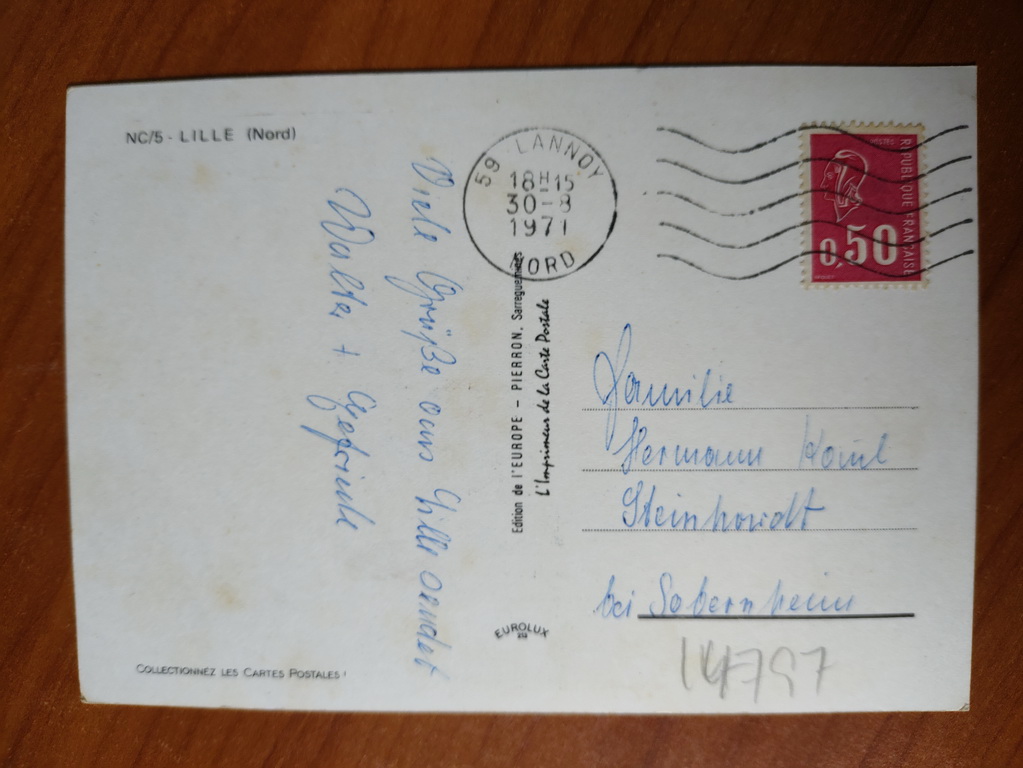 NC/5 - LILLE (Nord)
Viele Grüße aus Lille sendet
Walter +
59 LANNOY
18H15
30-8
1971
NORD
POSTES
REPUBLIQUE FRANÇAISE
0,50
Edition de l'EUROPE - PIERRON, Sarreguemines
L'Imprimeur de la Carte Postale
Familie
Hermann
Steinhardt
bei Sobernheim
EUROLUX
COLLECTIONNEZ LES CARTES POSTALES !